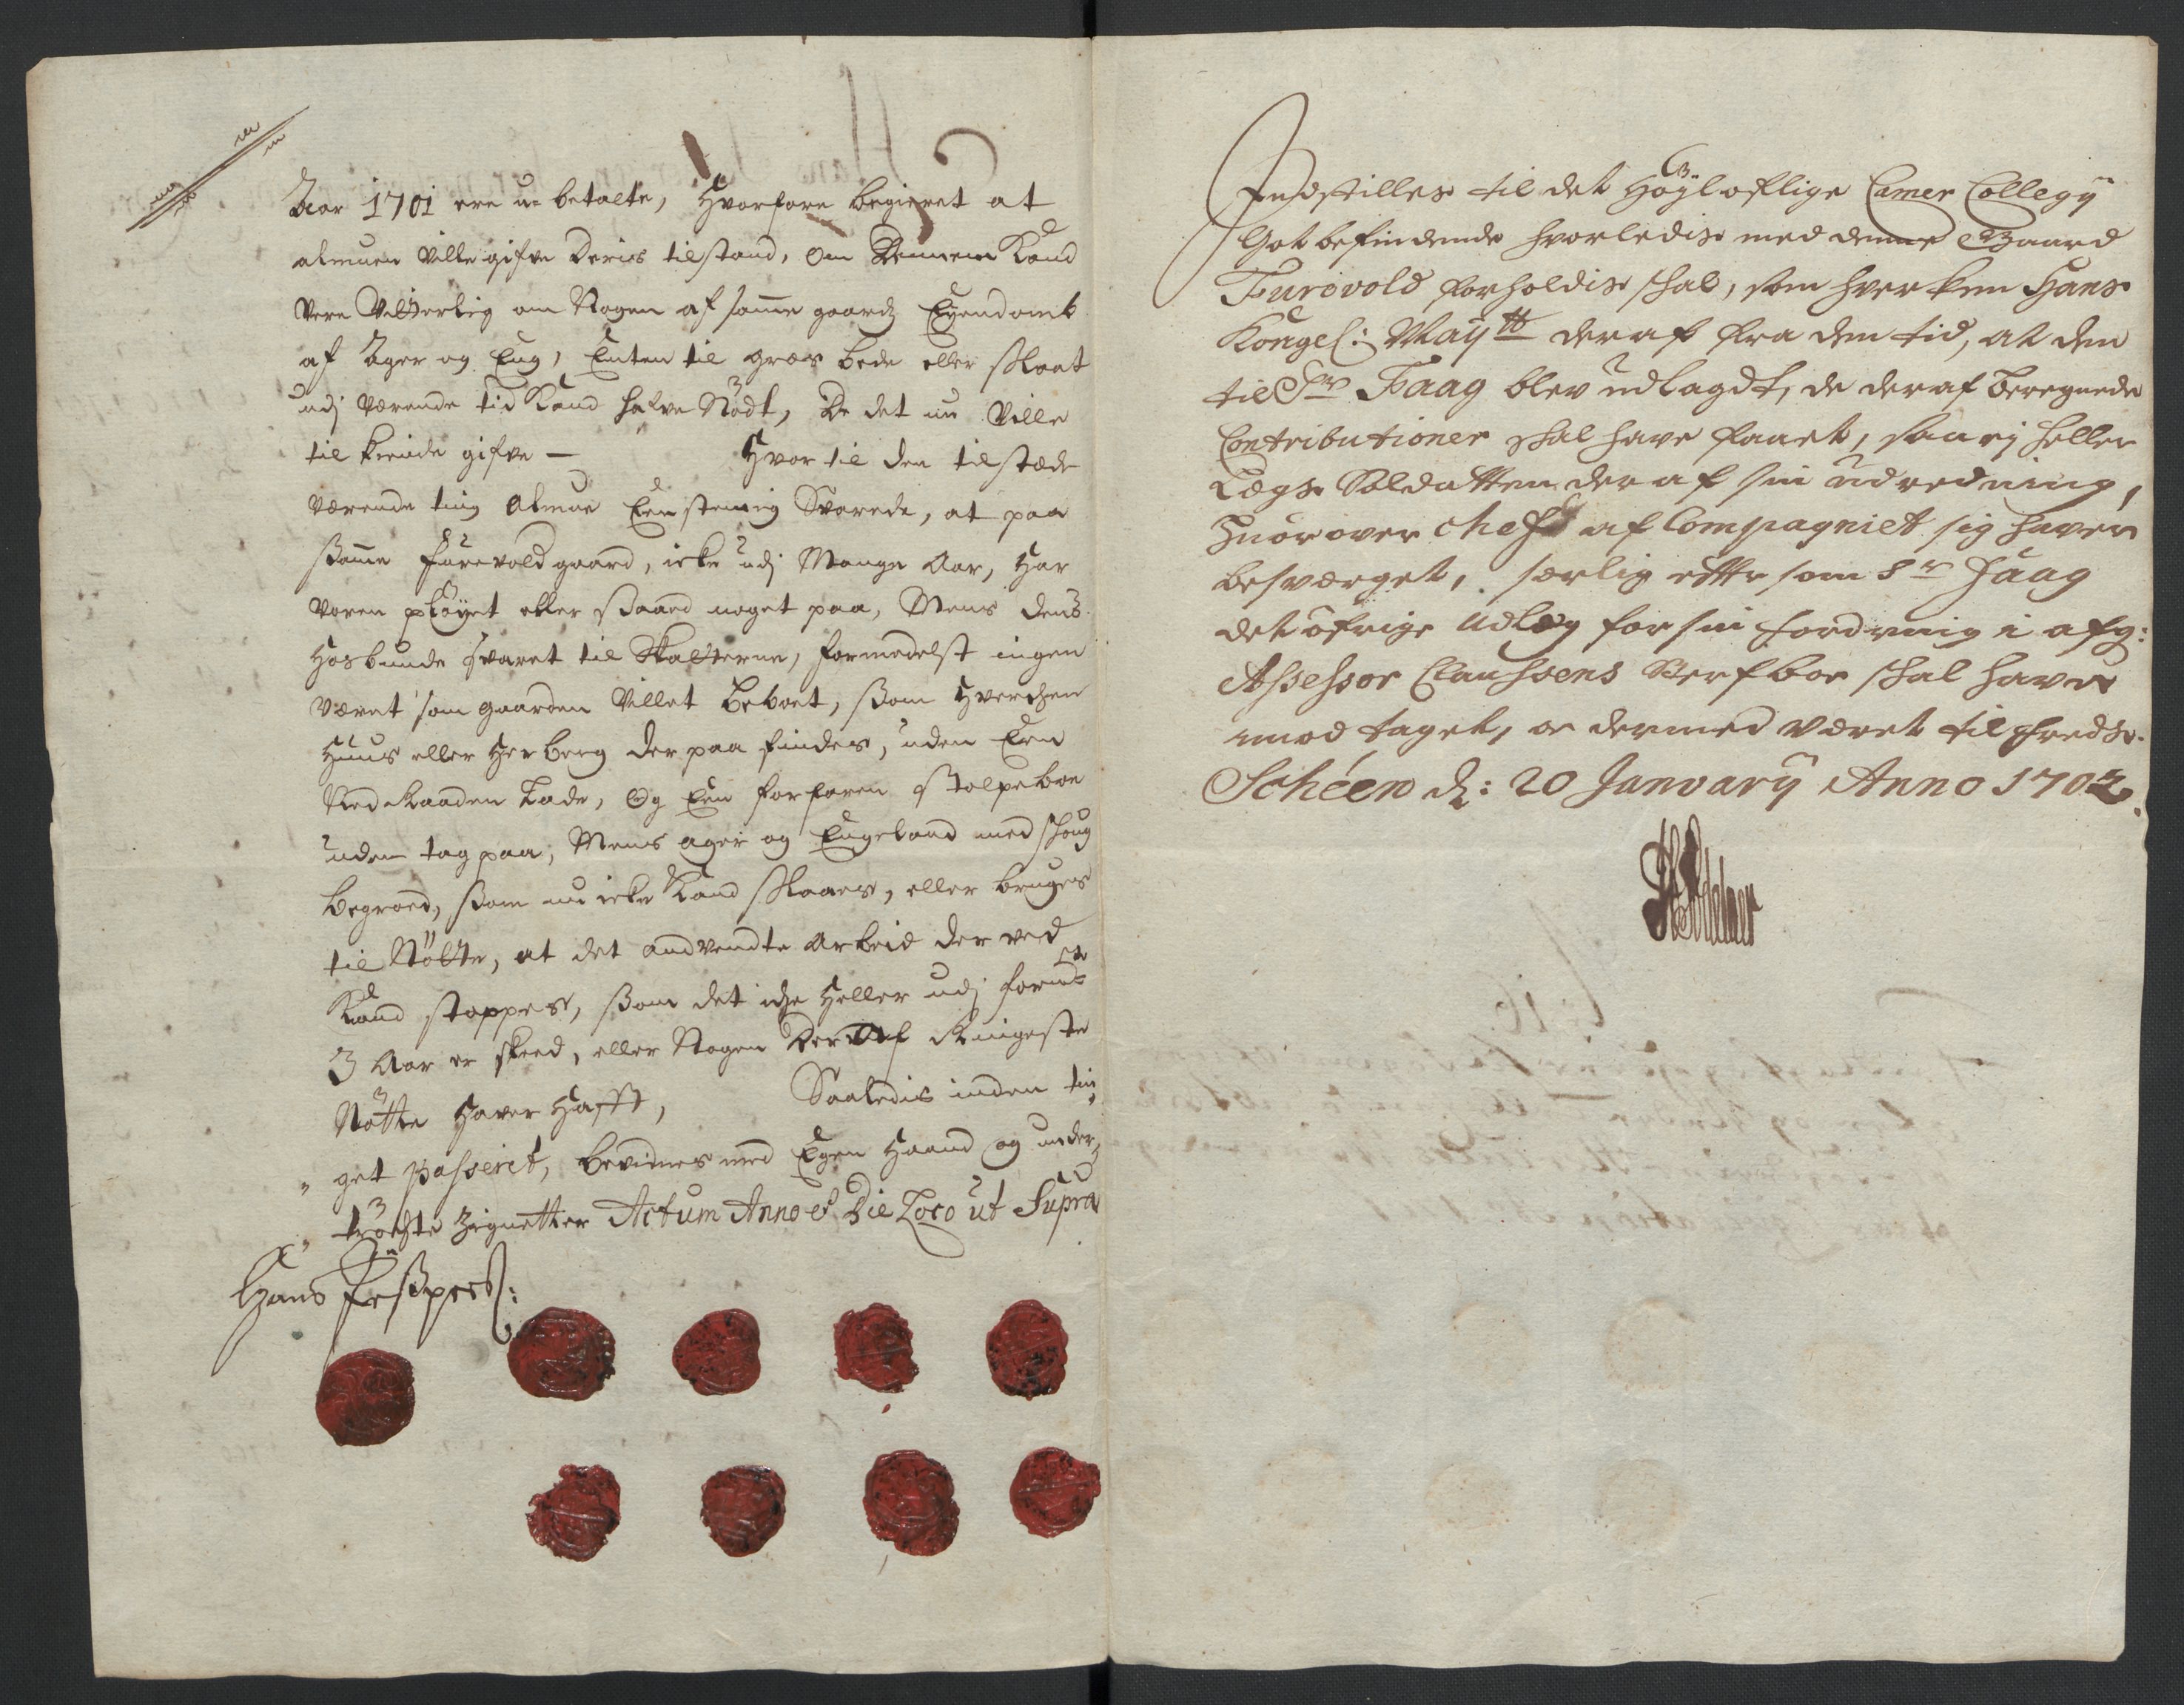 Aar 1701 ere u-betalte, Hvorfore begieret at
almuen ville gifve deris tilstand, om dennem Kand
vere Vitterlig om Nogen af samme gaardz Eyendomb
af Ager og Eng, Enten til græs bede eller Slaat
udj værende tid Kand hafve Nødt, de det nu ville
til kiende gifve — Hvor til den tilstæde
værende ting Almue Eenstemmig Svarede, at paa
samme Furevold gaard, icke udj Mange Aar, Har
voren pløyet eller Saaed noget paa, Mens dens
Hosbunde svaret til Skatterne, formedelst ingen
været som gaarden villet beboet, som Hverchen
Huus eller Herberg der paa findes, uden Een
Ned Raaden Lade, Og Een forfaren Stolpeboe
uden tag paa, Mens ager og Engeland med skoug
begroed, som nu icke Kand Slaaes, eller bruges
til Nøtte, at det andvendte Arbeid der ved
Kand stoppes, som det iche Heller udj forn:te
3 Aar er skeed, eller Nogen der af Ringeste
Nøtte Haver Hafft, Saaledis inden tin-
get passeret, bevidnes med Egen Haand og under-
tröchte Zignetter Actum Anno et Die Loco ut Supra
Hans
Indstilles til det Höyloflige Camer Collegij
Got befindende hvorledis med denne Gaard
Furovold forholdis skal, som hverken Hans
Kongel: Maytt deraf fra den tid, at den
til Sr Faag blev udlagdt, de deraf beregnede
Contributioner skal have faaet, saa ej heller
Lægs Soldatten deraf sin udredning,
Huorover Chefen af Compagniet sig haver
besværget, særlig etter som Sr Faag
det øfrige Udlæg for sin fordring i afg:
Assessor Claussens Sterfboe skal have
imod taget, oc dermed været tilfreds.
Schéen d: 20 January Anno 1702.